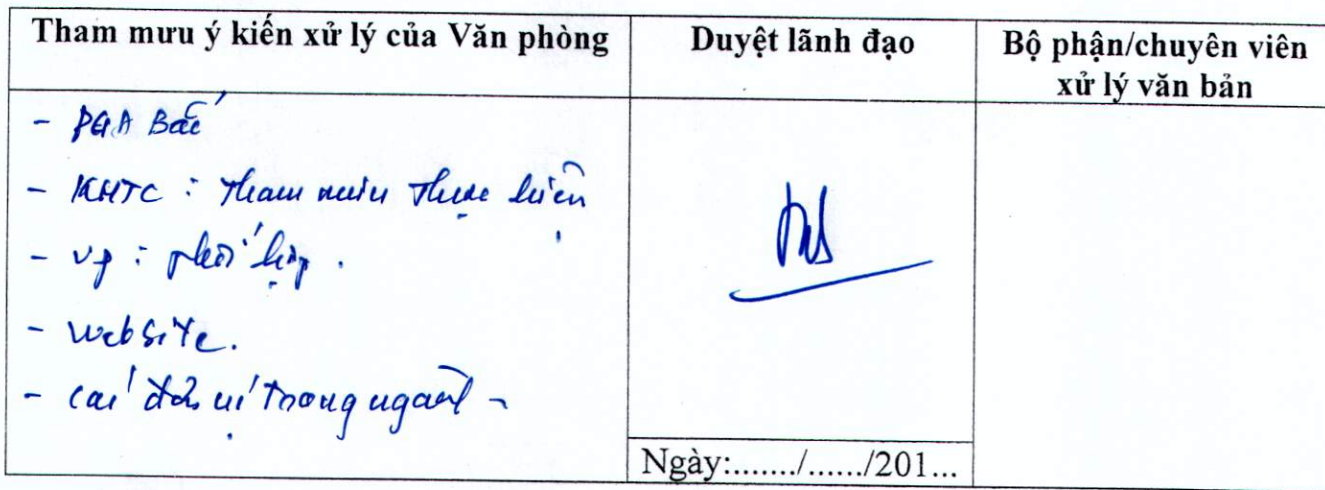 Tham mưu ý kiến xử lý của Văn phòng
Duyệt lãnh đạo
Bộ phận/chuyên viên
xử lý văn bản
- PGĐ Bắc
- KHTC : Tham mưu thực hiện
- VP : phối hợp.
- website.
- các đơn vị trong ngành -
Ngày:......./....../201...